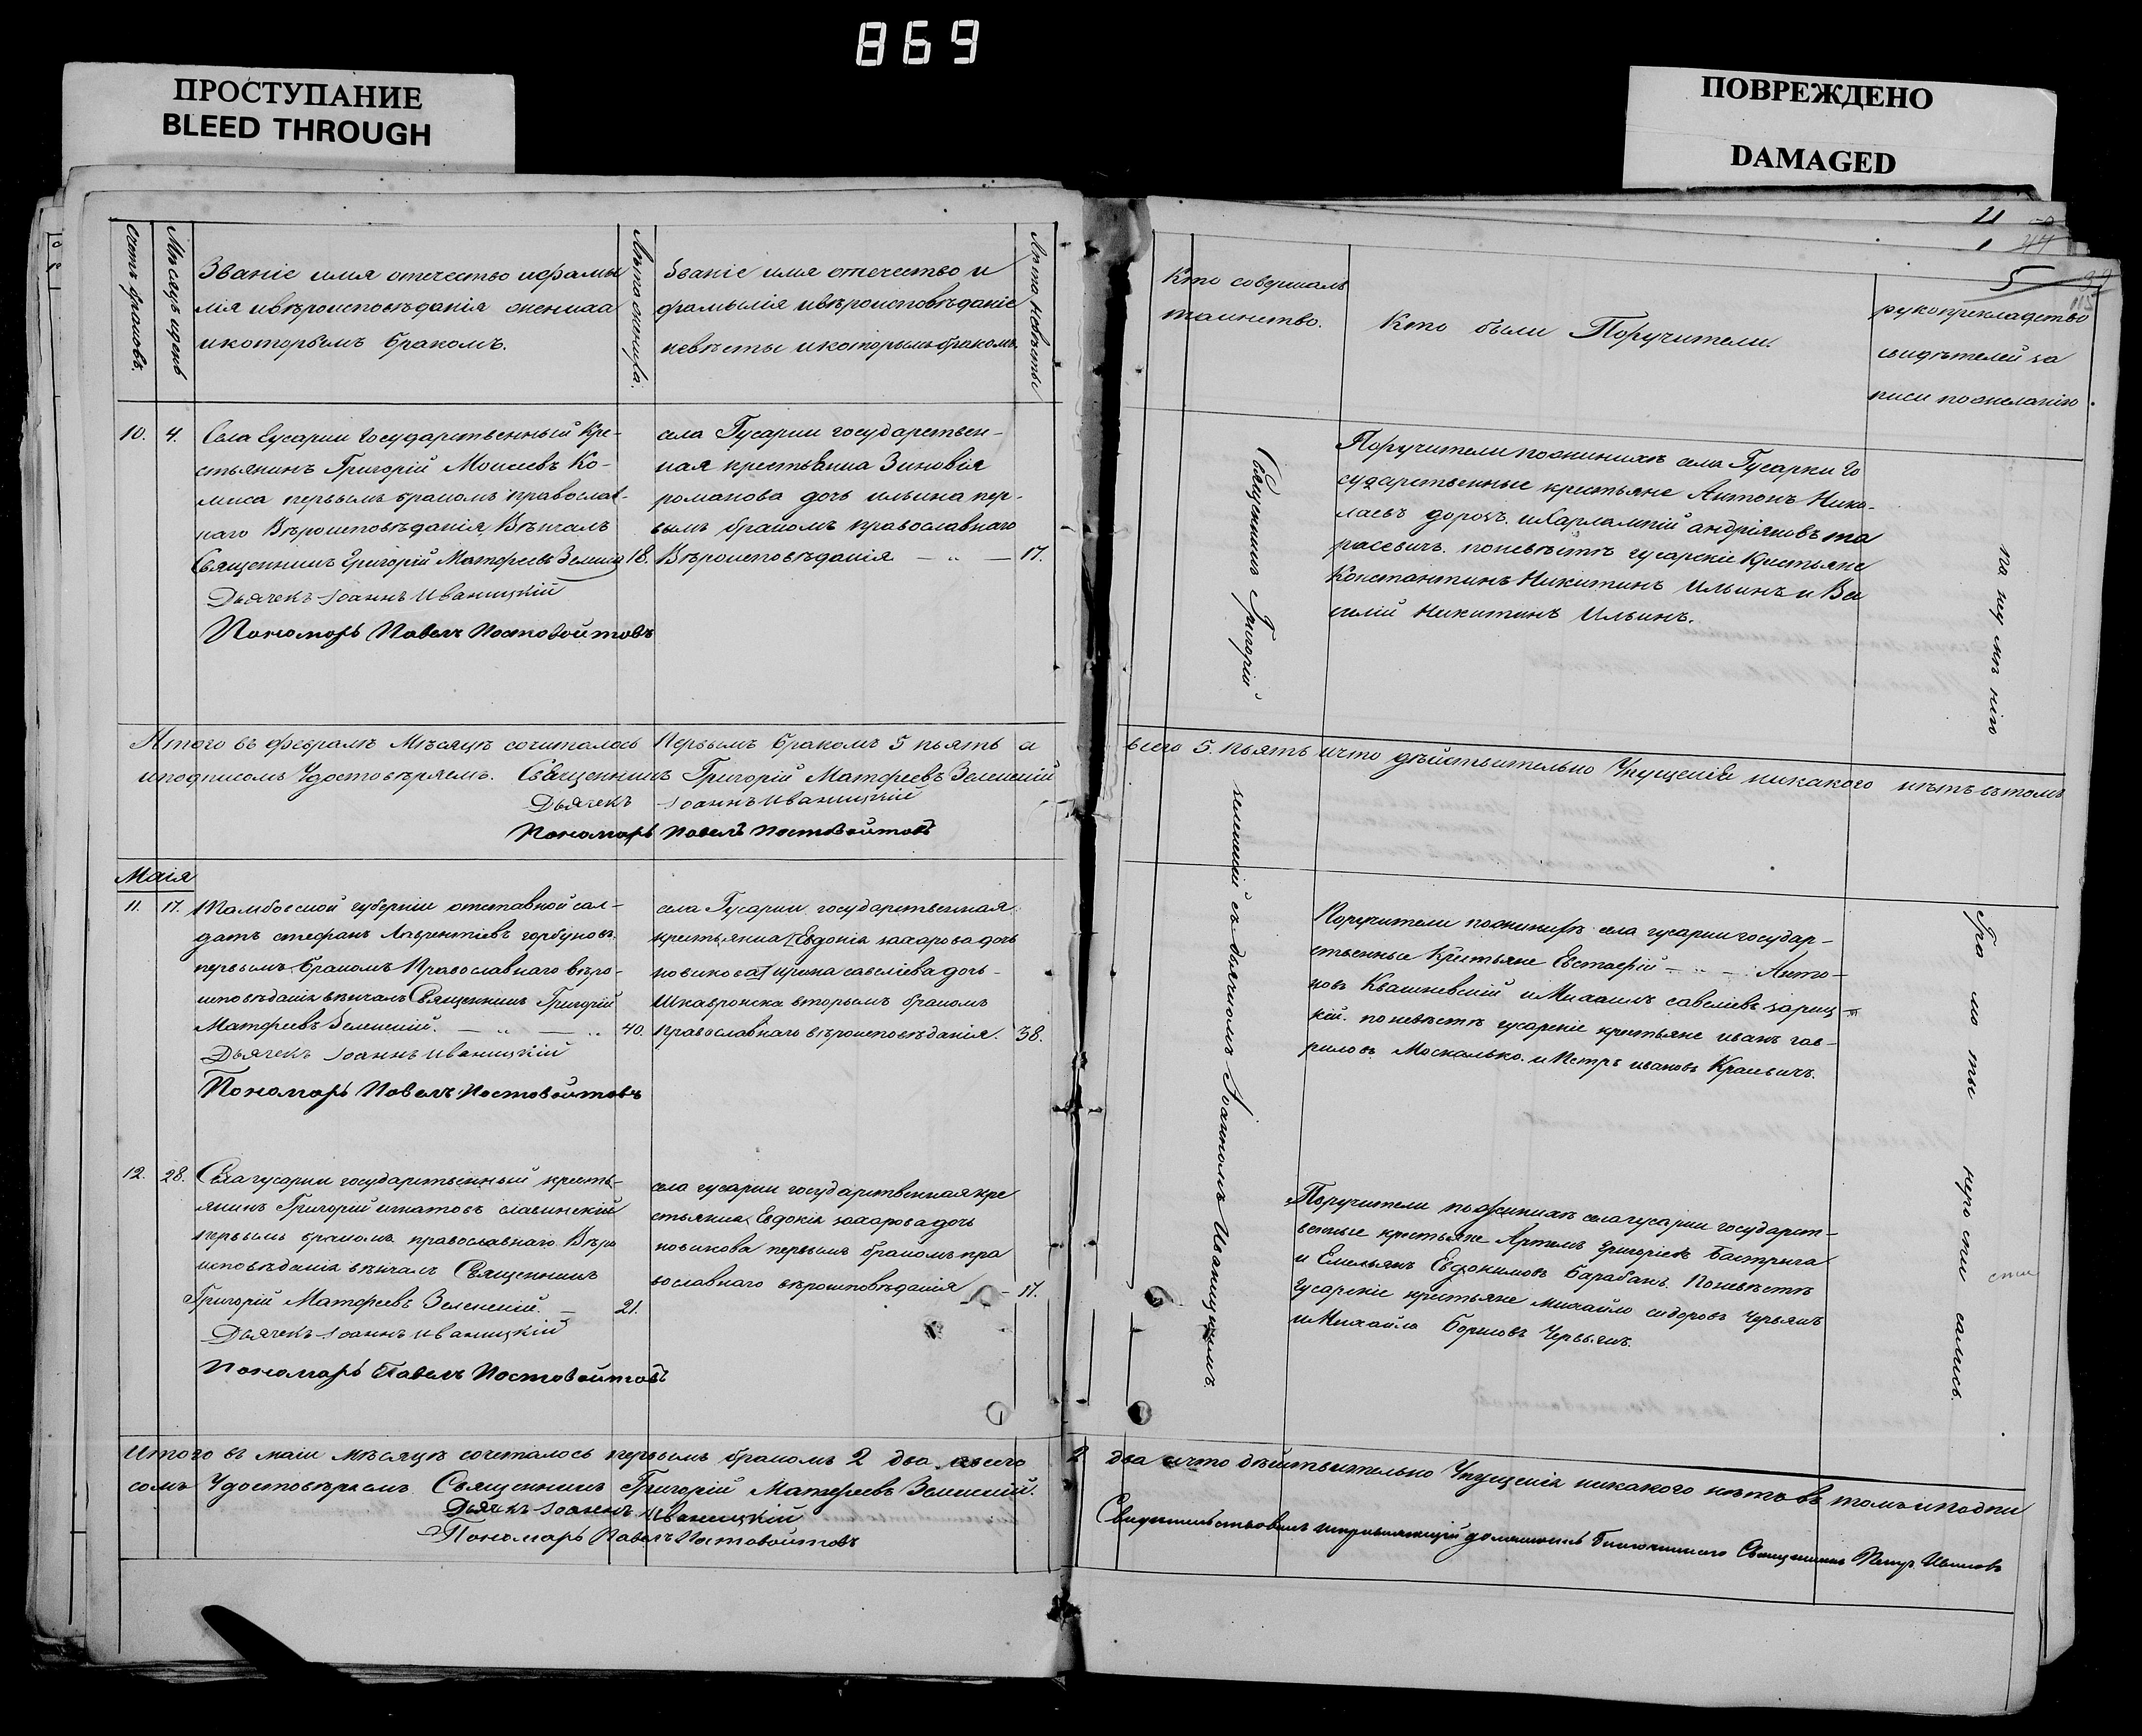 869
ПРОСТУПАНИЕ
BLEED THROUGH
ПОВРЕЖДЕНО
DAMAGED
Счетъ браковъ.
Мѣсяцъ и день
Званіе имя отечество и фамы
лія и вѣроисповѣданія жениха
и которымъ бракомъ.
Лѣта жениха.
Званіе имя отечество и
фамылія и вѣроисповѣданіе
невѣсты и которымъ бракомъ.
Лѣта невѣсты
10. 4. Села Гусарки Государственный Кре-
стьянинъ Григорій Моисеевъ Ко-
миса первымъ бракомъ православ-
наго Вѣроисповѣданія, Вѣнчалъ
Священникъ Григорій Матфеевъ 18.
Дьячекъ Іоаннъ Иваницкій
Пономарь Павелъ Постовойтовъ
села Гусарки государствен-
ная крестьянка Зиновія
романова дочь ильина пер-
вымъ бракомъ православнаго
Вѣроисповѣданія — „ — 17.
Итого въ февралѣ Мѣсяцѣ сочиталось Первымъ бракомъ 5 пьять а
и подписомъ Удостовѣряемъ. Священникъ Григорій Матфеевъ Зеленскій
Дьячекъ Іоаннъ Иваницкій
Пономарь Павелъ Постовойтовъ
Маія
11. 17. Тамбовской губерніи отставной сал-
датъ стефанъ Лаврентіевъ горбуновъ.
первымъ бракомъ Православнаго вѣро-
исповѣданія вѣнчалъ Священникъ Григорій
Матфеевъ Зеленскій. — „ — „ 40.
Дьячекъ Іоаннъ Иваницкій
Пономарь Павелъ Постовойтовъ
села Гусарки государственная
крестьянка Евдокія захарова дочь
новикова ирина савеліева дочь
Шкавронска вторымъ бракомъ
православнаго вѣроисповѣданія. 38.
12. 28. Села гусарки государственный кресть-
янинъ Григорій игнатовъ славинскій
первымъ бракомъ православнаго Вѣро
исповѣданія вѣнчалъ Священникъ
Григорій Матфеевъ Зеленскій. — 21.
Дьячекъ Іоаннъ Иваницкій
Пономарь Павелъ Постовойтовъ
села гусарки государственная кре
стьянка Евдокія захарова дочь
новикова первымъ бракомъ пра
вославнаго вѣроисповѣданія — 17.
Итого въ маіи мѣсяцѣ сочеталось первымъ бракомъ 2 два а всего
сомъ Удостовѣряемъ Священникъ Григорій Матфеевъ Зеленскій.
Дьячекъ Іоаннъ Иваницкій
Пономарь Павелъ Постовойтовъ
21
1 44
5
115
Кто совершалъ
таинство.
Кто были Поручители.
рукоприкладство
свидѣтелей за
писи по желанію.
Священникъ Григорій
Зеленскій съ дьячкомъ Іоанномъ Иваницкимъ.
Поручители по женихѣ села Гусарки Го
сударственные крестьяне Антонъ Нико-
лаевъ дорошъ. и Харлампій андріяновъ та
расевичъ. по невѣстѣ гусарскіе Крестьяне
Константинъ Никитинъ Ильинъ и Ва
силій Никитинъ Ильинъ.
всего 5. пьять и что дѣйствительно Упущенія никакого нѣтъ въ томъ
Поручители по женихѣ села гусарки государ-
ственные Крестьяне Евстафій — „ — Анто-
новъ Квашневскій и Михаилъ савеліевъ зариц-
кій. по невѣстѣ гусарскіе крестьяне иванъ гав-
риловъ Москалько. и Петръ ивановъ Кравничъ.
Поручители по женихѣ села гусарки государст-
венные крестьяне Артемъ григоріевъ Бастрыга
и Емельянъ Евдокимовъ Барабанъ. По невѣстѣ
гусарскіе крестьяне михайло сидоровъ Червякъ
и Михайло Борисовъ Червьякъ.
по неумѣнію
Гра мо ты
негра
самись.
2 два и что дѣйствительно Упущенія никакого нѣтъ въ томъ и подпи
Свидетельствовалъ исправляющій должность благочиннаго Священникъ Петръ Ивановъ